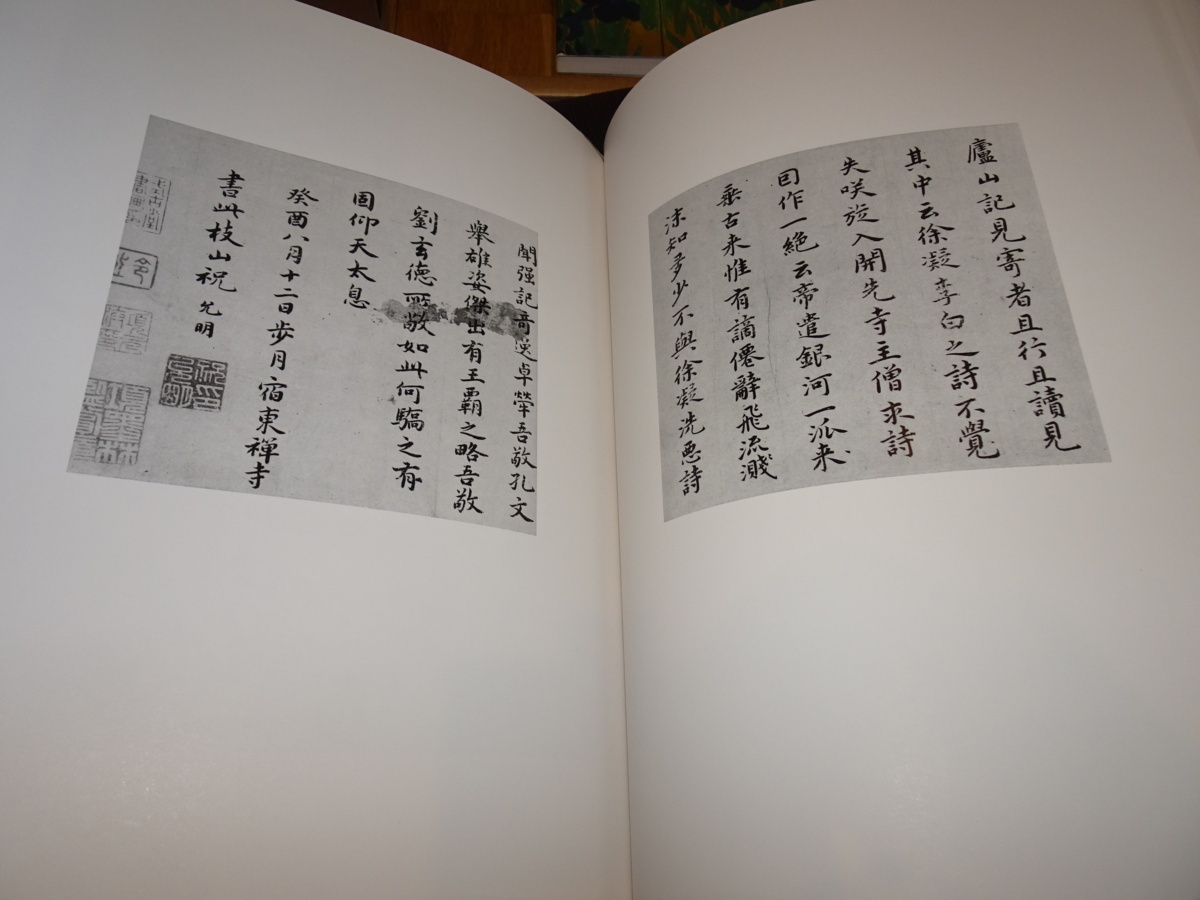 廬山記見寄者且行且讀見
其中云徐凝李白之詩不覺
失咲旋入開先寺主僧求詩
囙作一絕云帝遣銀河一派来
垂古来惟有謫僊辭飛流濺
沫知多少不與徐凝洗惡詩
聞强記奇逸卓犖吾敬孔文
舉雄姿傑出有王霸之略吾敬
劉玄德所敬如此何驕之有
固仰天太息
癸酉八月十二日步月宿東禪寺
書此枝山祝允明